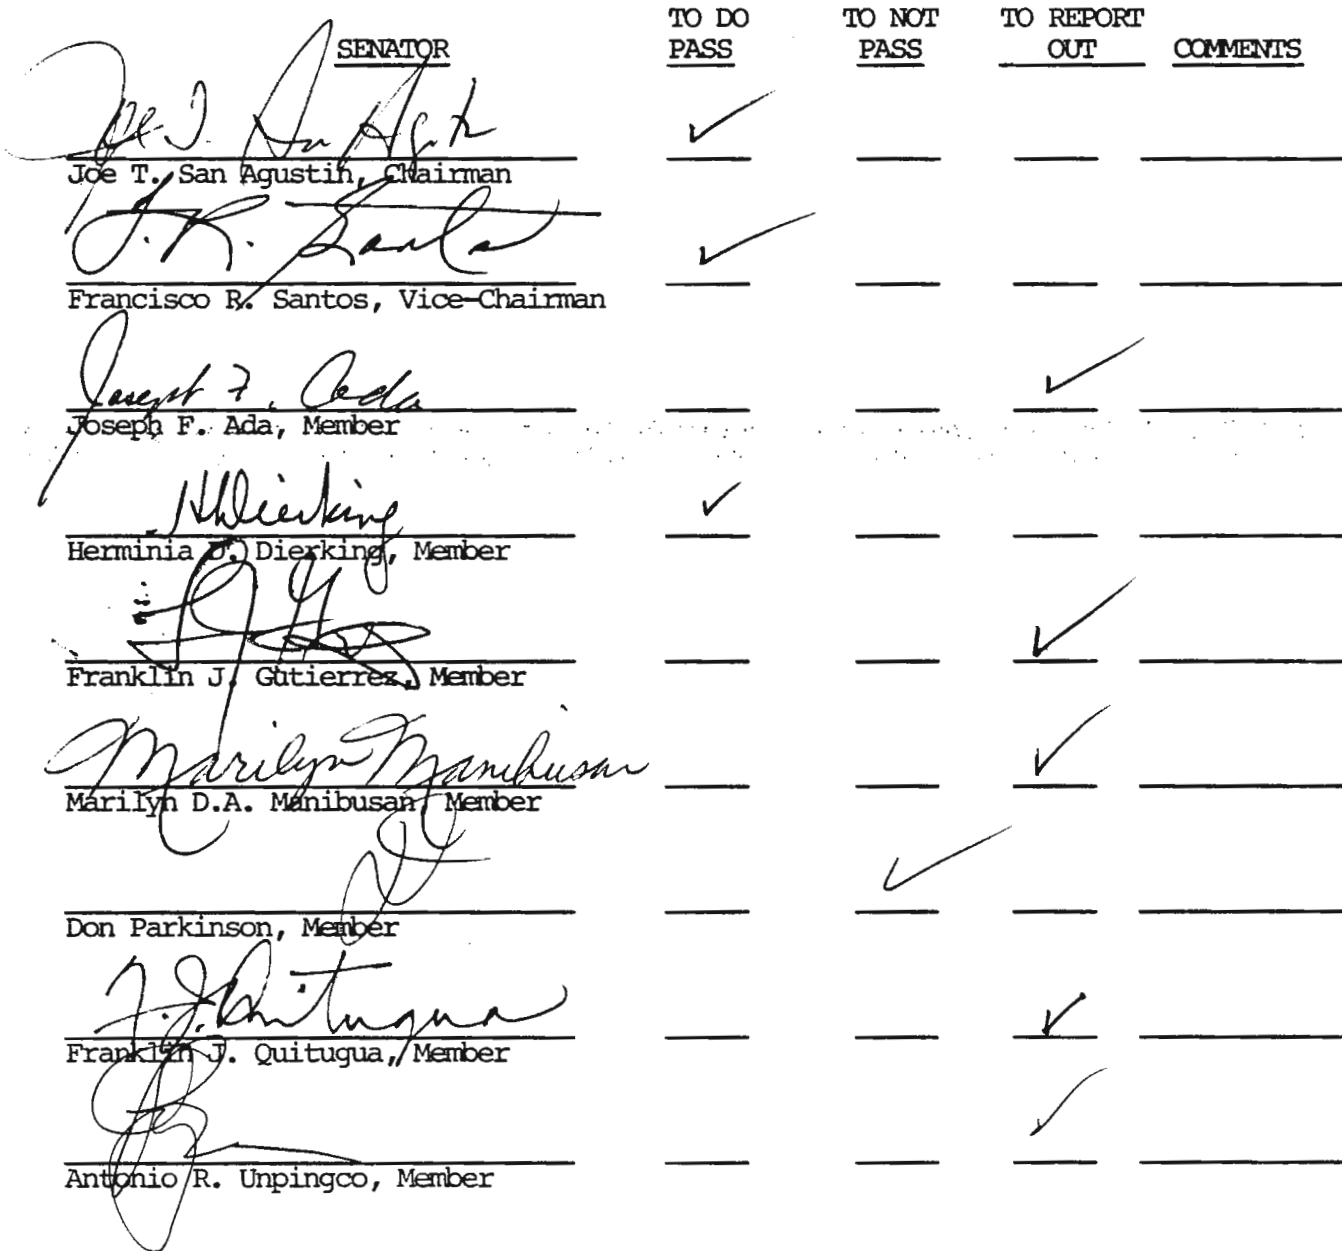 TO DO TO NOT TO REPORT
SENATOR PASS PASS OUT COMMENTS
Joe T. San Agustin ✓
Joe T. San Agustin, Chairman
F. R. Santos ✓
Francisco R. Santos, Vice-Chairman
Joseph F. Ada ✓
Joseph F. Ada, Member
HDierking ✓
Herminia D. Dierking, Member
✓
Franklin J. Gutierrez, Member
Marilyn Manibusan ✓
Marilyn D.A. Manibusan, Member
✓
Don Parkinson, Member
F. J. Quitugua ✓
Franklin J. Quitugua, Member
✓
Antonio R. Unpingco, Member